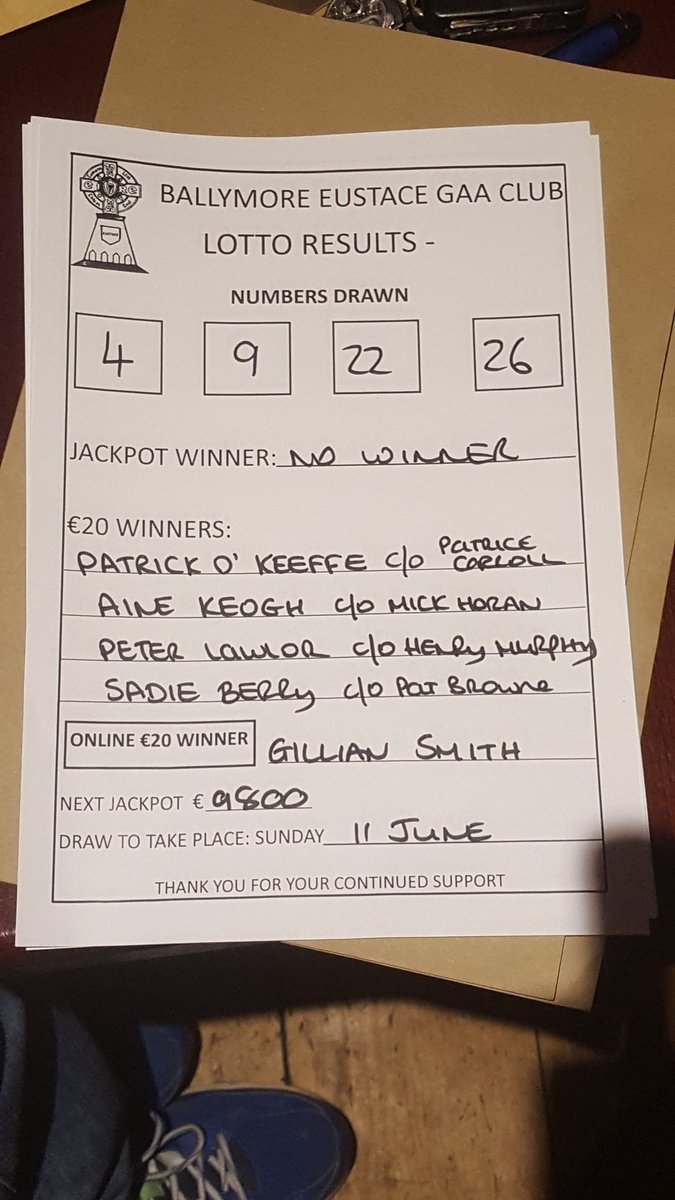 BALLYMORE EUSTACE GAA CLUB
LOTTO RESULTS -
NUMBERS DRAWN
4 9 22 26
JACKPOT WINNER: NO WINNER
€20 WINNERS:
PATRICK O' KEEFFE C/O PATRICE CARROLL
AINE KEOGH C/O MICK HORAN
PETER LAWLOR C/O HENRY MURPHY
SADIE BERRY C/O PAT BROWNE
ONLINE €20 WINNER GILLIAN SMITH
NEXT JACKPOT € 9800
DRAW TO TAKE PLACE: SUNDAY 11 JUNE
THANK YOU FOR YOUR CONTINUED SUPPORT